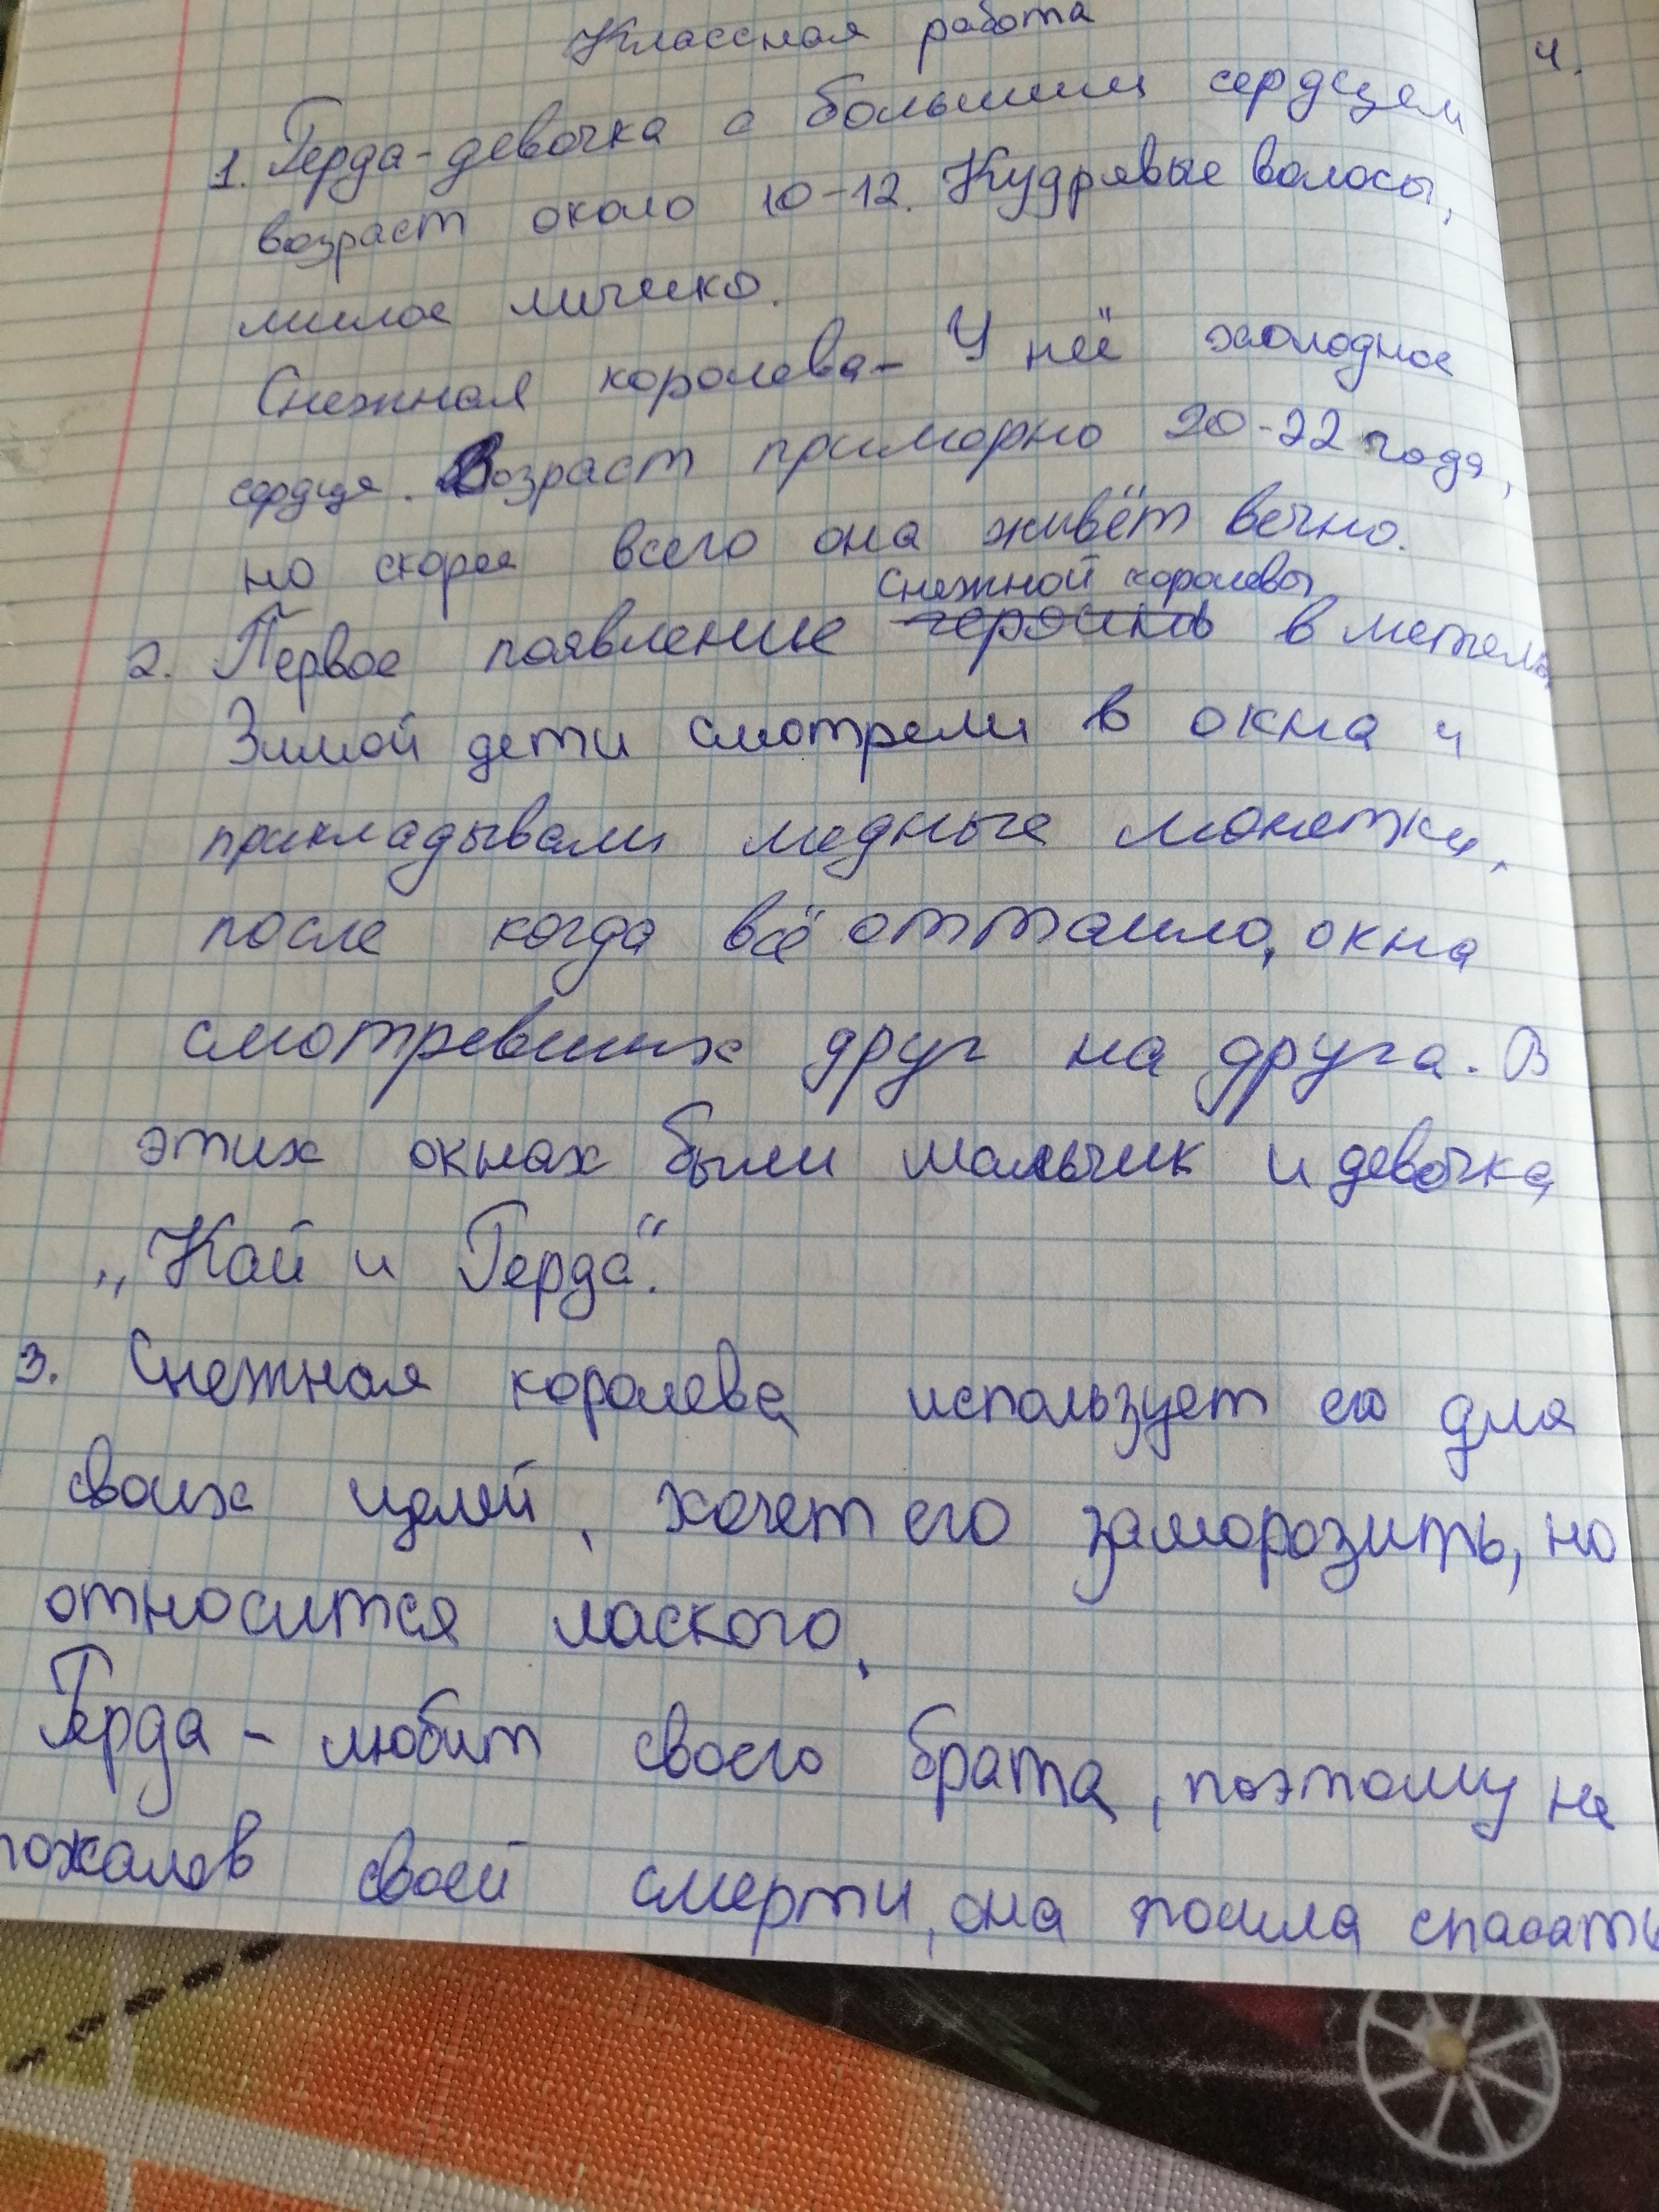 Классная работа
4.
1. Герда-девочка с большим сердцем
возраст около 10-12. Кудрявые волосы,
милое личико.
Снежная королева- У неё холодное
сердце. Возраст приморно 20-22 года,
но скорее всего она живёт вечно.
Снежной королевы
2. Первое появление геройнов в метель,
Зимой дети смотрели в окна и
прикладывали медные монетки,
после когда всё оттаило, окна
смотревших друг на друга. В
этих окнах были мальчик и девочка
„Кай и Герда“.
3. Снежная королева использует его для
своих целей, хочет его заморозить, но
относится лаского.
Герда - любит своего брата, поэтому не
пожалев своей смерти, она пошла спасать